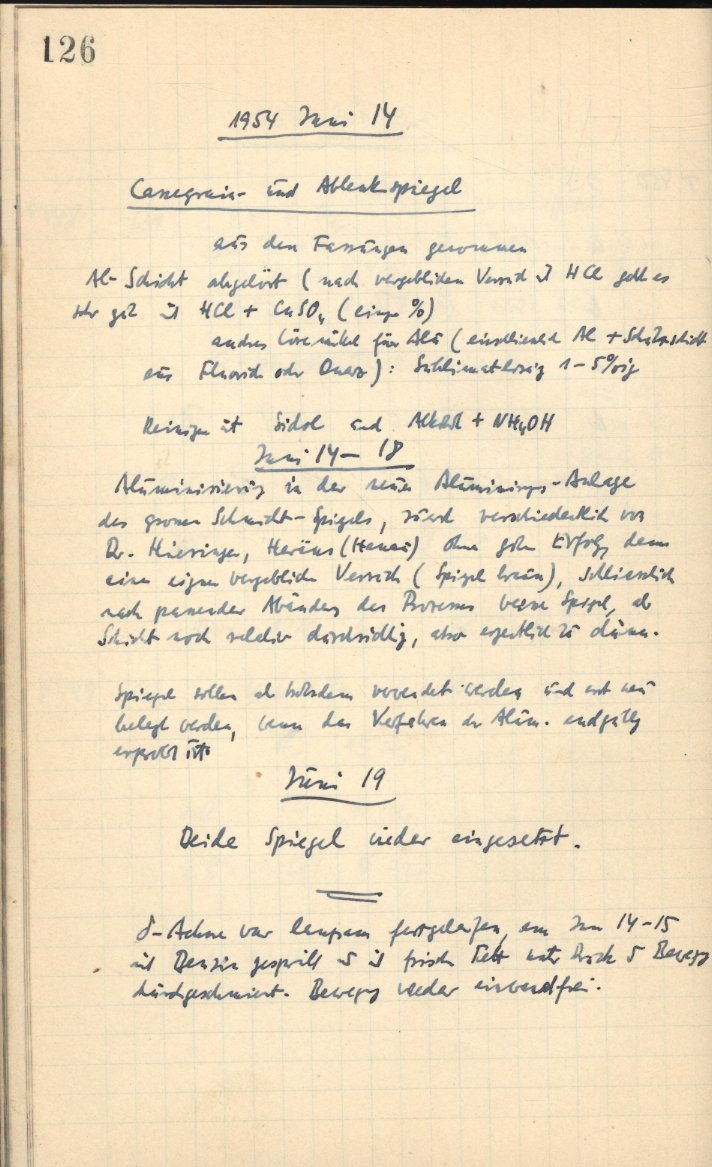 126
1954 Juni 14
Cassegrain- und Ablenkspiegel
aus den Fassungen genommen
Al-Schicht abgelöst (nach vergeblichem Versuch mit HCl geht es
sehr gut mit HCl + CuSO4 (einige %)
andres Lösemittel für Alu (einschliesslich Al + Schutzschicht
aus Fluorid oder Quarz): Sublimatlösung 1-5%ig
Reinigen mit Sidol und Alkohol + NH4OH
Juni 14 - 18
Aluminisierung in der neuen Aluminiumgs-Anlage
des grossen Schmidt-Spiegels, zuerst verschiedentlich von
Dr. Hiesinger, Heräus (Hanau) ohne guten Erfolg, dann
einen eignen vergeblichen Versuch (Spiegel braun), schliesslich
nach passender Abänderg des Prozesses Spiegel, ab
Schicht noch relativ durchsichtig, also eigentlich zu dünn.
Spiegel sollen ab trotzdem verwendet werden und erst neu
belegt werden, wenn das Verfahren der Alum. endgültig
erprobt ist.
Juni 19
Beide Spiegel wieder eingesetzt.
δ-Achse war langsam festgelaufen, am Juni 14-15
mit Benzin gespült u mit frisch Fett unter Druck u Bewegg
durchgeschmiert. Bewegg wieder einwandfrei.